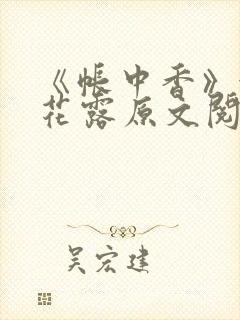 《帐中香》
花露原文阅
吴宏建